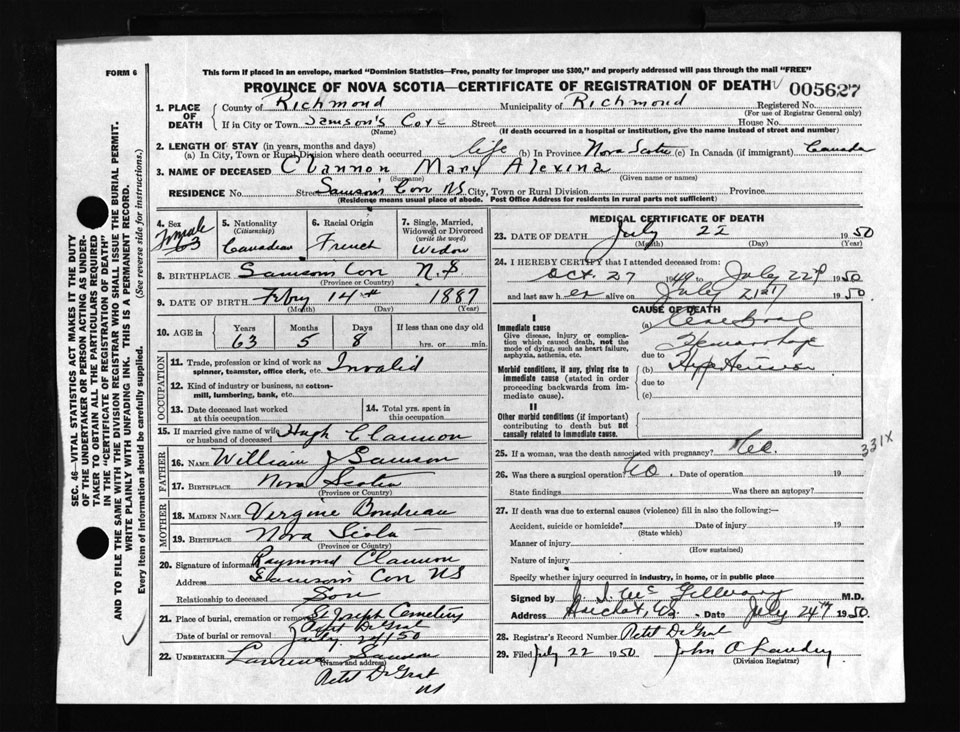 FORM 6
This form if placed in an envelope, marked "Dominion Statistics—Free, penalty for improper use $300," and properly addressed will pass through the mail "FREE"
PROVINCE OF NOVA SCOTIA—CERTIFICATE OF REGISTRATION OF DEATH 005627
1. PLACE OF DEATH
County of Richmond Municipality of Richmond Registered No.
(For use of Registrar General only)
If in City or Town Samson's Cove Street House No.
(Name) (If death occurred in a hospital or institution, give the name instead of street and number)
2. LENGTH OF STAY (in years, months and days)
(a) In City, Town or Rural Division where death occurred life (b) In Province Nova Scotia (c) In Canada (if immigrant) Canada
3. NAME OF DECEASED Clannon Mary Alexina
(Surname) (Given name or names)
RESIDENCE No. Street Samson's Cove NS City, Town or Rural Division Province
(Residence means usual place of abode. Post Office Address for residents in rural parts not sufficient)
4. Sex Female 63
5. Nationality (Citizenship) Canadian
6. Racial Origin French
7. Single, Married, Widowed or Divorced (write the word) Widow
8. BIRTHPLACE Samsons Cove N.S.
(Province or Country)
9. DATE OF BIRTH Febry 14th 1887
(Month) (Day) (Year)
10. AGE in Years 63 Months 5 Days 8 If less than one day old hrs. or min.
OCCUPATION
11. Trade, profession or kind of work as spinner, teamster, office clerk, etc. Invalid
12. Kind of industry or business, as cotton-mill, lumbering, bank, etc.
13. Date deceased last worked at this occupation
14. Total yrs. spent in this occupation
15. If married give name of wife or husband of deceased Hugh Clannon
FATHER
16. NAME William J Samson
17. BIRTHPLACE Nova Scotia
(Province or Country)
MOTHER
18. MAIDEN NAME Vergine Boudreau
19. BIRTHPLACE Nova Scotia
(Province or Country)
20. Signature of informant Raymond Clannon
Address Samson's Cove NS
Relationship to deceased Son
21. Place of burial, cremation or removal St Joseph Cemetery
Petit De Grat
Date of burial or removal July 24/50
22. UNDERTAKER Samson
(Name and address)
Petit De Grat
NS
MEDICAL CERTIFICATE OF DEATH
23. DATE OF DEATH July 22 1950
(Month) (Day) (Year)
24. I HEREBY CERTIFY that I attended deceased from:
Oct. 27 1949 to July 22nd 1950
and last saw her alive on July 21st 1950.
CAUSE OF DEATH
I
Immediate cause
Give disease, injury or complication which caused death, not the mode of dying, such as heart failure, asphyxia, asthenia, etc.
(a) Cerebral
Hemorrhage
due to
Morbid conditions, if any, giving rise to immediate cause (stated in order proceeding backwards from immediate cause).
(b) Hypertension
due to
(c)
II
Other morbid conditions (if important) contributing to death but not causally related to immediate cause.
25. If a woman, was the death associated with pregnancy? No. 331X
26. Was there a surgical operation? No Date of operation 19
State findings Was there an autopsy?
27. If death was due to external causes (violence) fill in also the following:—
Accident, suicide or homicide? Date of injury 19
(State which)
Manner of injury
(How sustained)
Nature of injury
Specify whether injury occurred in industry, in home, or in public place
Signed by M.D.
Address Arichat, NS. Date July 24th 1950.
28. Registrar's Record Number Petit De Grat
29. Filed July 22 1950 John A Landry
(Division Registrar)
SEC. 46—VITAL STATISTICS ACT MAKES IT THE DUTY
OF THE UNDERTAKER OR PERSON ACTING AS UNDER-
TAKER TO OBTAIN ALL THE PARTICULARS REQUIRED
IN THE "CERTIFICATE OF REGISTRATION OF DEATH"
AND TO FILE THE SAME WITH THE DIVISION REGISTRAR WHO SHALL ISSUE THE BURIAL PERMIT.
WRITE PLAINLY WITH UNFADING INK. THIS IS A PERMANENT RECORD.
Every item of Information should be carefully supplied. (See reverse side for instructions.)